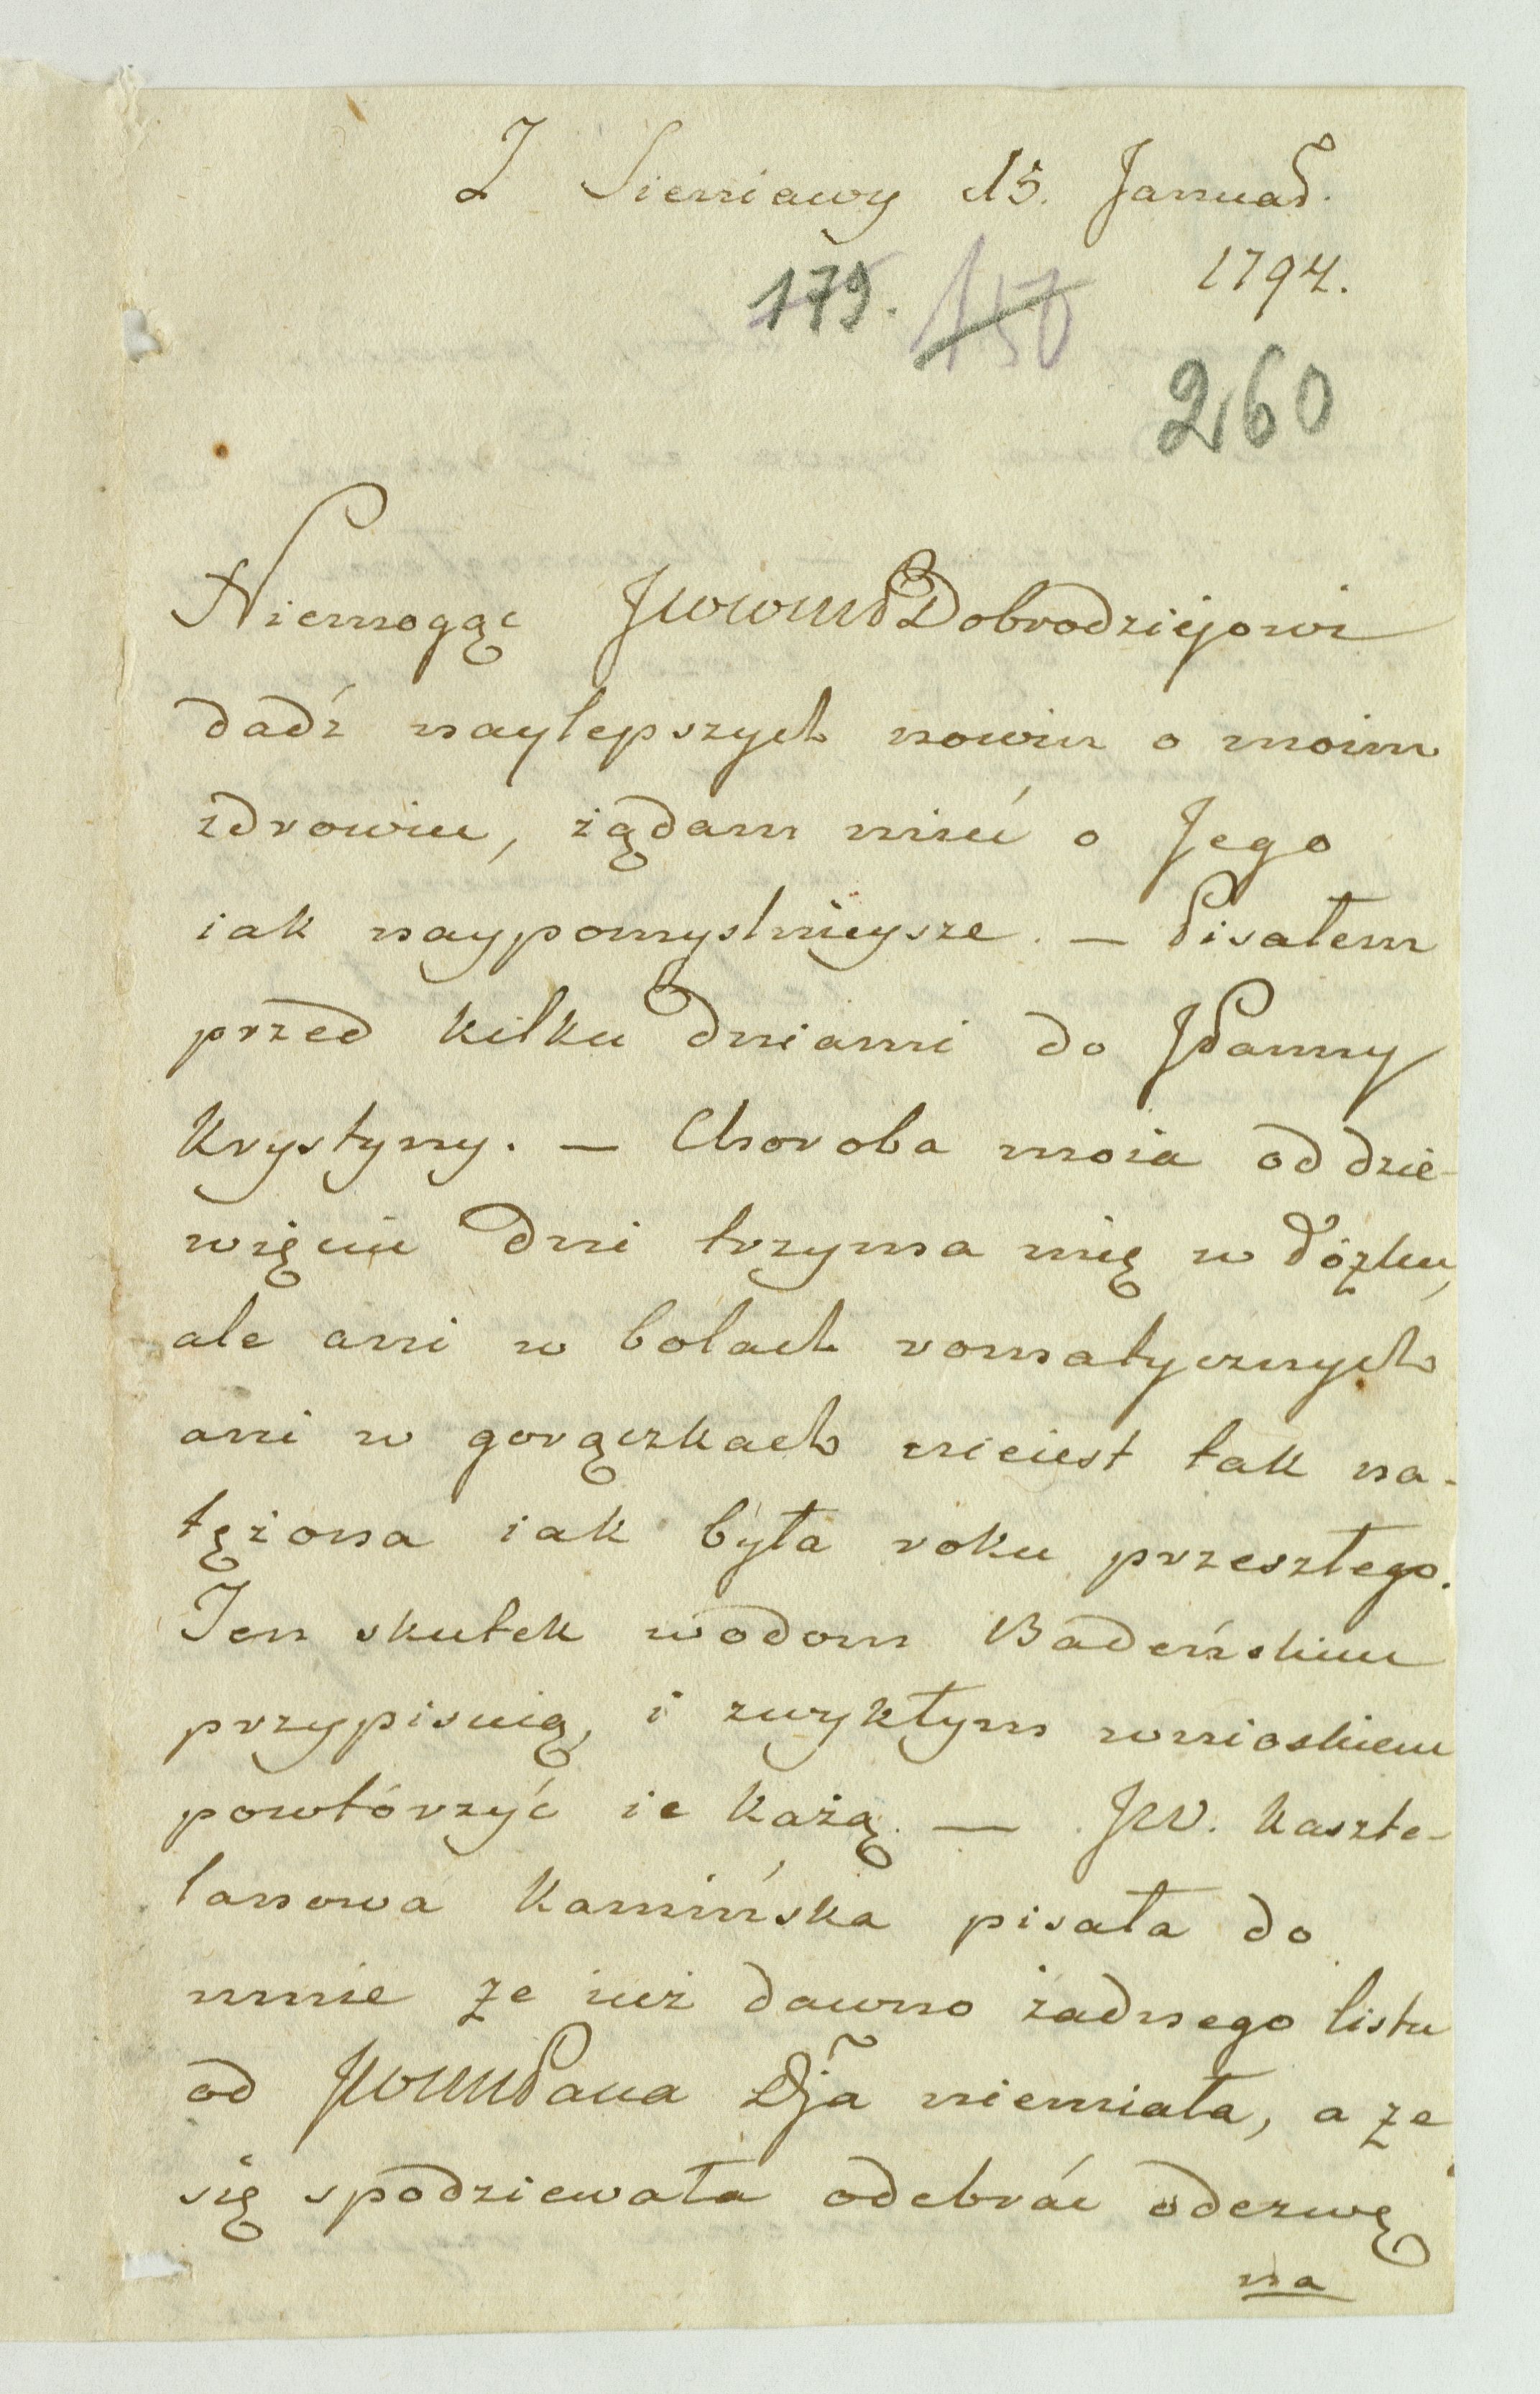 Z Sieniawy d 15. Januar.
1794.
179. 150
260
Niemogąc JWWMPDobrodziejowi
dadź naylepszych nowin o moim
zdrowiu, żądam mieć o Jego
iak naypomyslnieysze. — Pisałem
przed kilku dniami do JPanny
Krystyny. — Choroba moia od dzie-
więciu dni trzyma mię w łóżku,
ale ani w bolach romatycznych
ani w gorączkach nieiest tak na-
tężona iak była roku przeszłego.
Ten skutek wodom Badeńskim
przypisuią, i zwykłym wnioskiem
powtórzyć ie każą. — JW. Kaszte-
lanowa Kamińska pisała do
mnie że iuż dawno żadnego listu
od JWWMPana Dja niemiała, a że
się spodziewała odebrać odezwę
na